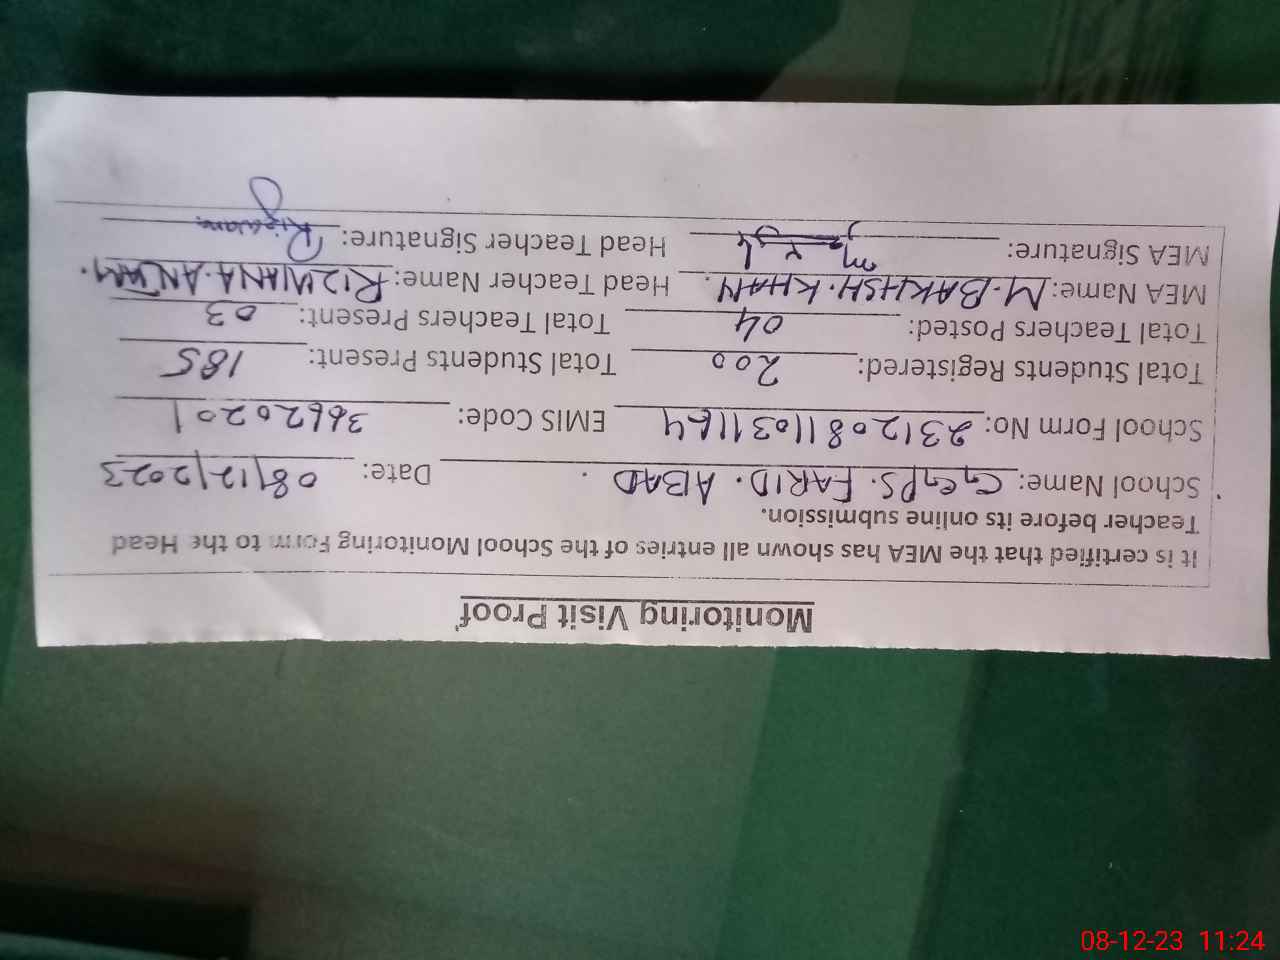 Monitoring Visit Proof
It is certified that the MEA has shown all entries of the School Monitoring Form to the Head
Teacher before its online submission.
School Name: GGPS. FARID. ABAD. Date: 08/12/2023
School Form No: EMIS Code: 36620201
Total Students Registered: 200 Total Students Present: 185
Total Teachers Posted: 04 Total Teachers Present: 03
MEA Name: M. BAKHSH. KHAN. Head Teacher Name: RIZWANA.
MEA Signature: Head Teacher Signature: Rizwana
08-12-23 11:24